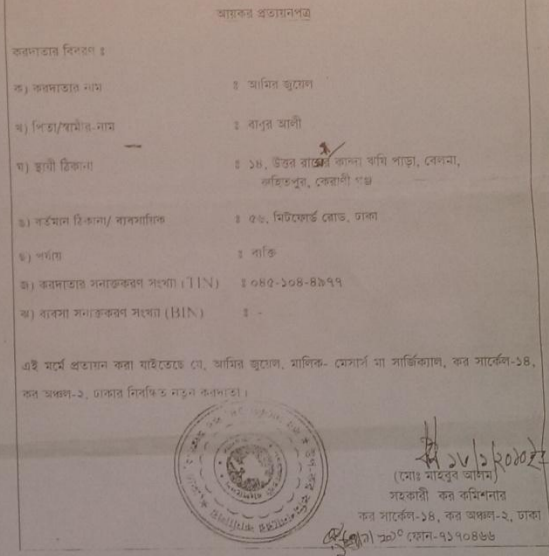 আয়কর প্রত্যয়নপত্র
করদাতার বিবরণ ঃ
ক) করদাতার নাম ঃ আমির জুয়েল
খ) পিতা/স্বামীর-নাম ঃ বানুর আলী
ঘ) স্থায়ী ঠিকানা ঃ ১৪, উত্তর কান্দা ঋষি পাড়া, বেলনা,
রুহিতপুর, কেরাণী গঞ্জ
ঙ) বর্তমান ঠিকানা/ ব্যবসায়িক ঃ ৫৬, মিটফোর্ড রোড, ঢাকা
চ) পর্যায় ঃ ব্যক্তি
জ) করদাতার সনাক্তকরণ সংখ্যা (TIN) ঃ ০৪৫-১০৪-৪৯৭৭
ঝ) ব্যবসা সনাক্তকরণ সংখ্যা (BIN) ঃ -
এই মর্মে প্রত্যয়ন করা যাইতেছে যে, আমির জুয়েল, মালিক- মেসার্স মা সার্জিক্যাল, কর সার্কেল-১৪,
কর অঞ্চল-২, ঢাকার নিবন্ধিত নতুন করদাতা।
(মোঃ মাহবুব আলম)
সহকারী কর কমিশনার
কর সার্কেল-১৪, কর অঞ্চল-২, ঢাকা
ফোন-৭১৭০৪৬৬